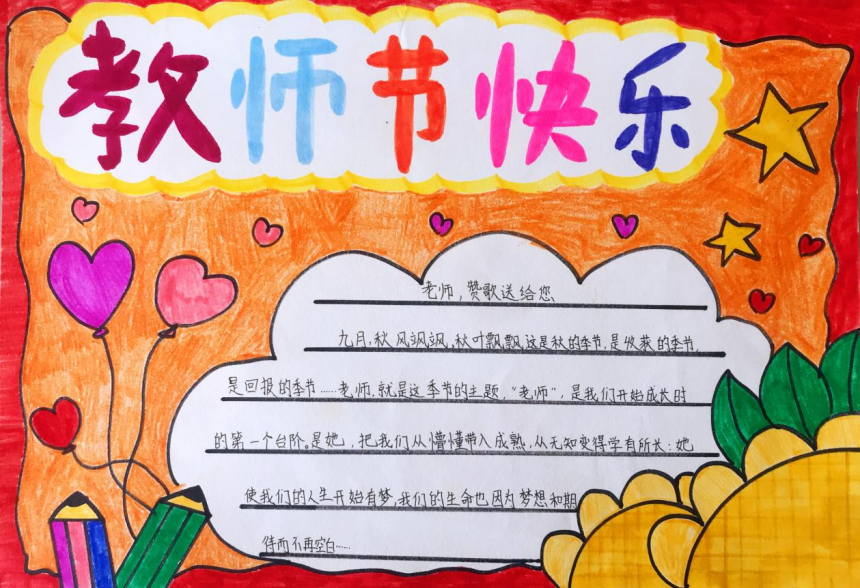 教师节快乐
老师,赞歌送给您
九月,秋风飒飒,秋叶飘飘,这是秋的季节,是收获的季节,
是回报的季节……老师,就是这季节的主题,“老师”,是我们开始成长时
的第一个台阶。是她,把我们从懵懂带入成熟,从无知变得学有所长;她
使我们的人生开始有梦,我们的生命也因为梦想和期
待而不再空白……